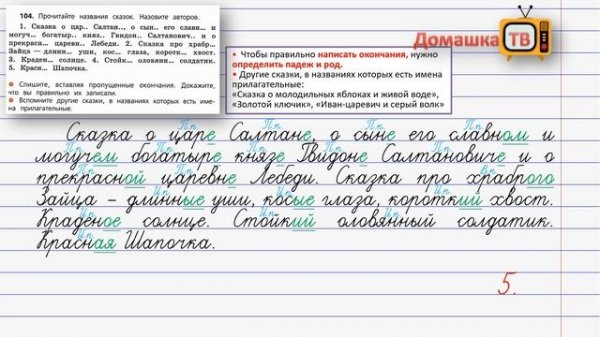 104. Прочитайте названия сказок. Назовите авторов.
1. Сказка о цар.. Салтан.., о сын.. его славн.. и
могуч... богатыр.. княз.. Гвидон.. Салтанович.. и о
прекрасн... царевн.. Лебеди. 2. Сказка про храбр...
Зайца — длинн... уши, кос... глаза, коротк... хвост.
3. Краден... солнце. 4. Стойк... оловянн... солдатик.
5. Красн... Шапочка.
● Спишите, вставляя пропущенные окончания. Докажите,
что вы правильно их записали.
● Вспомните другие сказки, в названиях которых есть име-
на прилагательные.
Домашка ТВ
• Чтобы правильно написать окончания, нужно
определить падеж и род.
• Другие сказки, в названиях которых есть имена
прилагательные:
«Сказка о молодильных яблоках и живой воде»,
«Золотой ключик», «Иван-царевич и серый волк»
П.п. П.п. П.п. П.п.
Сказка о царе Салтане, о сыне его славном и
П.п. П.п. П.п.
могучем богатыре князе Гвидоне Салтановиче и о
П.п. П.п.
прекрасной царевне Лебеди. Сказка про храброго
И.п. И.п. И.п.
Зайца – длинные уши, косые глаза, короткий хвост.
И.п. И.п. И.п.
Краденое солнце. Стойкий оловянный солдатик.
И.п.
Красная Шапочка.
5.